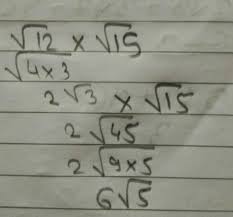 √12 × √15
√4×3
2√3 × √15
2√45
2√9×5
6√5